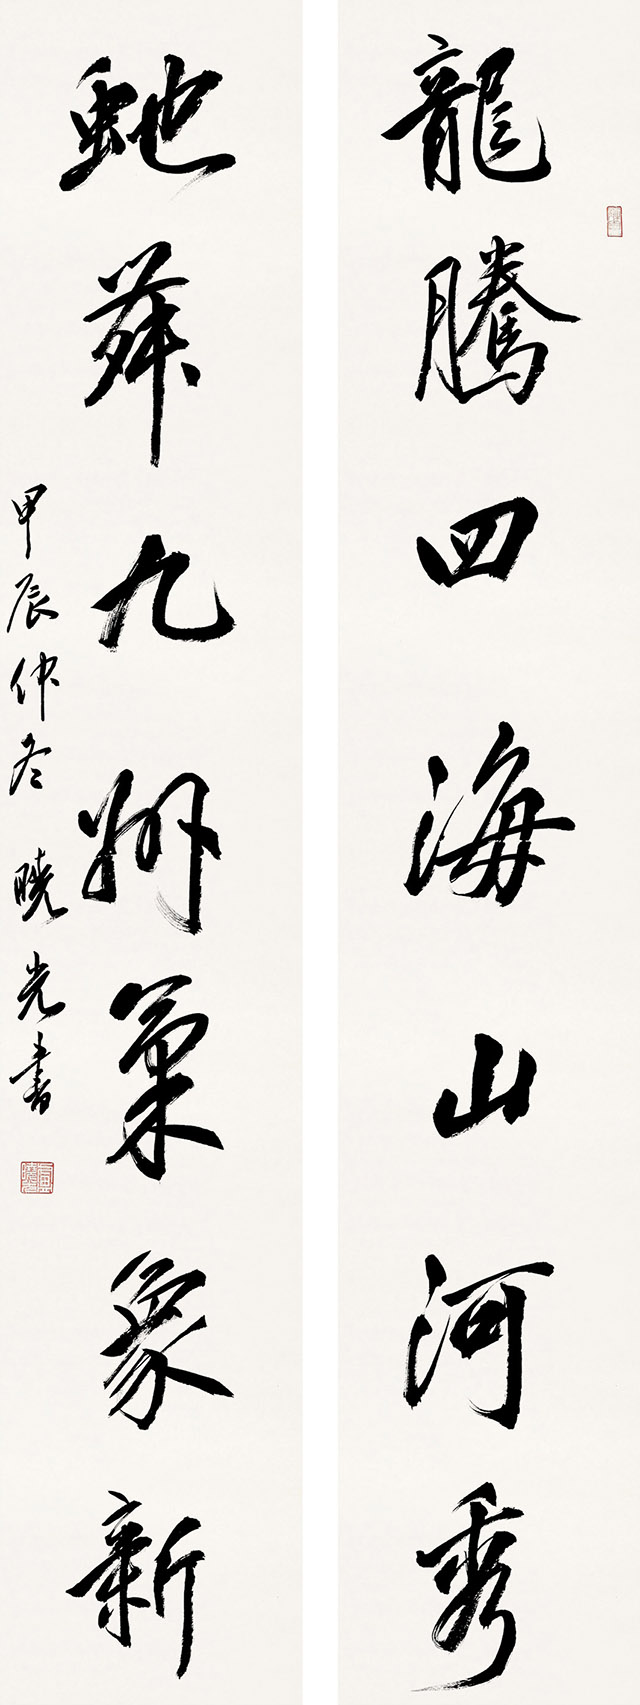 龍騰四海山河秀
虵舞九州氣象新
甲辰仲冬 曉光書